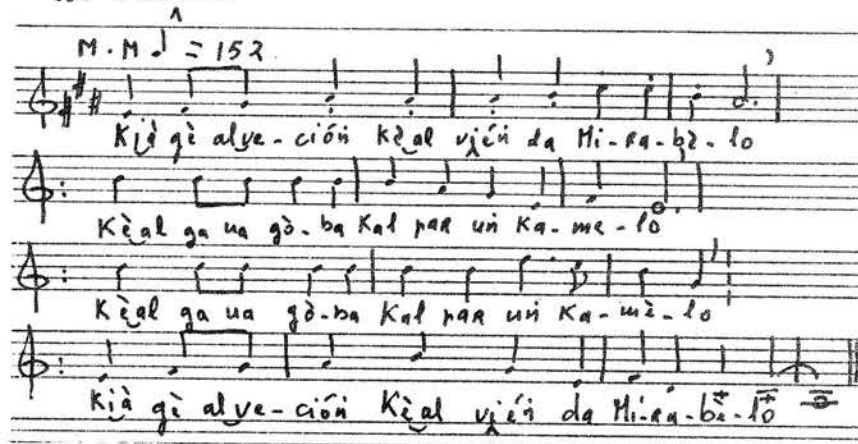 M.M ♩ = 152
Kịà gè alve-ción kèal vịén da Mi-ra-bè-lo
Kèal ga ua gò-ba Kal par uṅ Ka-me-lo
Kèal ga ua gò-ba Kal par uṅ Ka-mè-lo
Kịà gè alve-ción Kèal vịén da Mi-ra-bè-lo